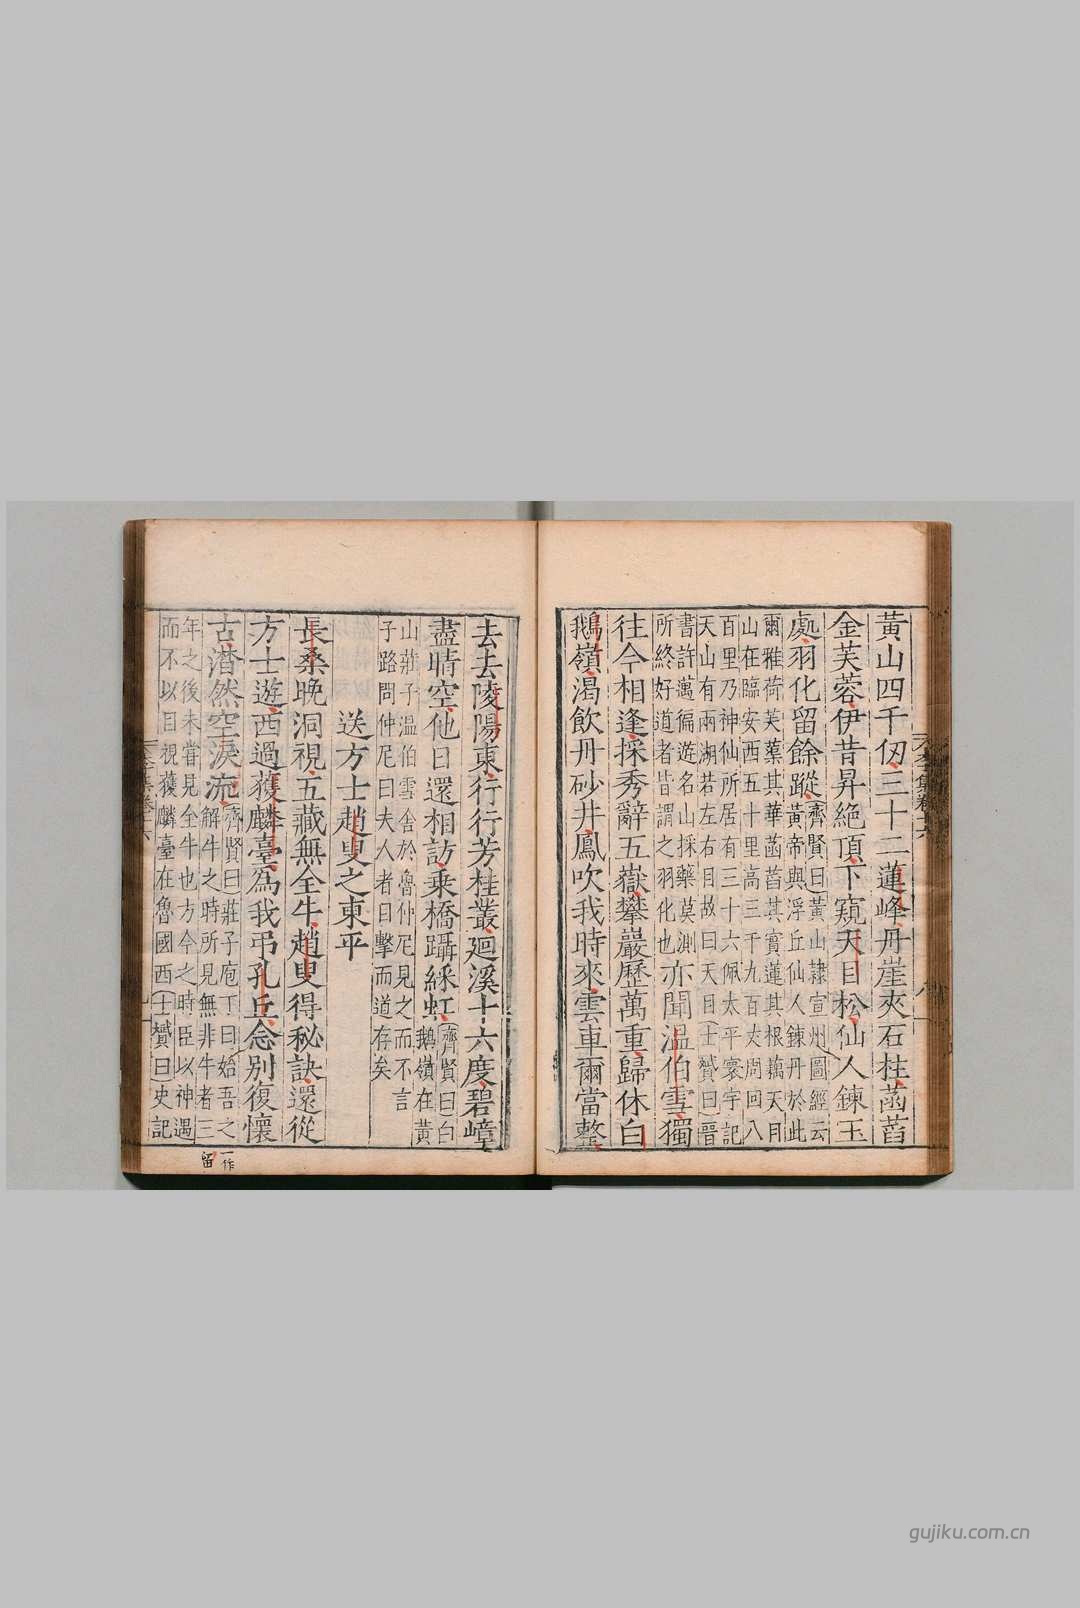 黃山四千仞三十二蓮峰丹崖夾石柱菡萏
金芙蓉伊昔昇絶頂下窺天目松仙人鍊玉
處羽化留餘蹤齊賢曰黃山隸宣州圖經云
黃帝與浮丘仙人鍊丹於此
爾雅荷芙蕖其華菡萏其實蓮其根藕天目
山在臨安西五十里高三千九百丈周回八
百里乃神仙所居有三十六佩太平寰宇記
天山有兩湖若左右目故曰天目士贇曰晉
書許邁徧遊名山採藥莫測
所終好道者皆謂之羽化也亦聞溫伯雪獨
往今相逢採秀辭五嶽攀巖歷萬重歸休白
鵝嶺渴飲丹砂井鳳吹我時來雲車爾當整
去去陵陽東行行芳桂叢廻溪十六度碧嶂
盡晴空他日還相訪乘橋躡綵虹齊賢曰白
鵝嶺在黃
山莊子温伯雪舍於魯仲尼見之而不言
子路問仲尼曰夫人者目擊而道存矣
送方士趙叟之東平
長桑晚洞視五藏無全牛趙叟得秘訣還從
方士遊西過獲麟臺爲我弔孔丘念別復懷
古潸然空淚流齊賢曰莊子庖丁曰始吾之
解牛之時所見無非牛者三
年之後未嘗見全牛也方今之時臣以神遇
而不以目視獲麟臺在魯國西士贇曰史記
一作
留
gujiku.com.cn